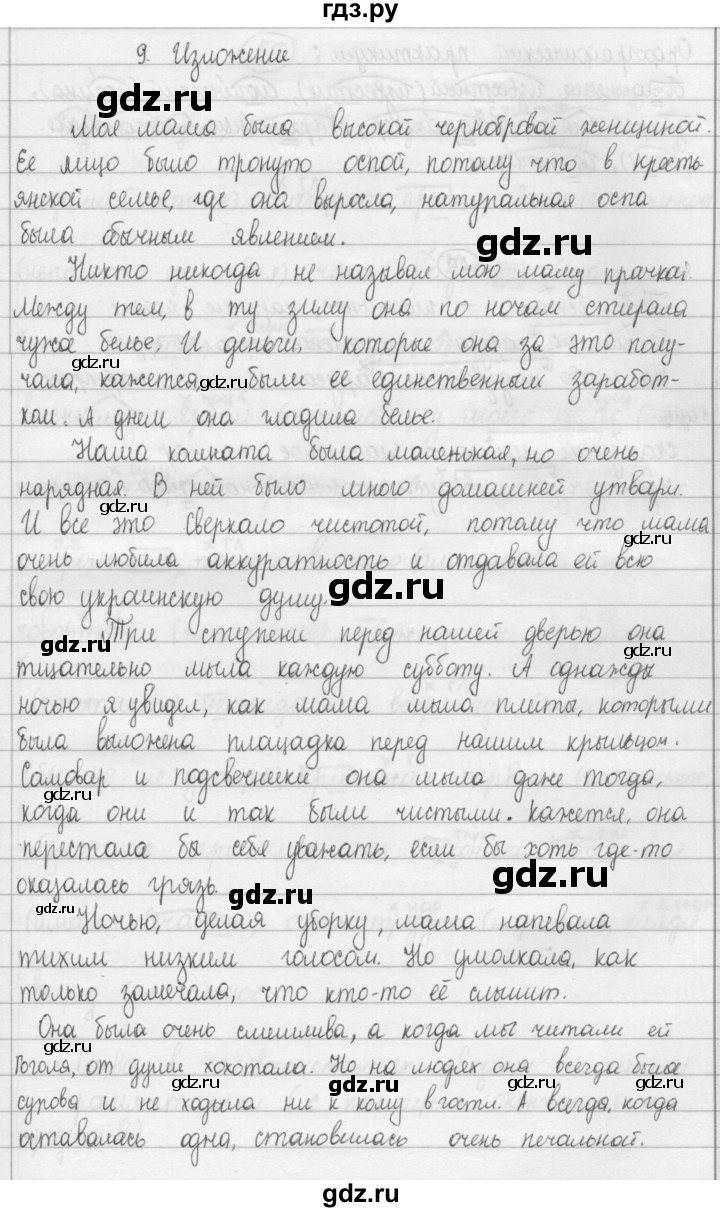 гдз.ру
9. Изложение
Моя мама была высокой чернобровой женщиной.
Ее лицо было тронуто оспой, потому что в кресть-
янской семье, где она выросла, натуральная оспа
была обычным явлением.
gdz.ru
Никто никогда не называл мою маму прачкой.
Между тем, в ту зиму она по ночам стирала
чужое белье. И деньги, которые она за это полу-
gdz.ru
чала, кажется, были ее единственным заработ-
ком. А днем она гладила белье.
Наша комната была маленькая, но очень
нарядная. В ней было много домашней утвари.
И все это сверкало чистотой, потому что мама
очень любила аккуратность и отдавала ей всю
свою украинскую душу.
gdz.ru
Три ступени перед нашей дверью она
тщательно мыла каждую субботу. А однажды
ночью я увидел, как мама мыла плиты, которыми
была выложена площадка перед нашим крыльцом.
Самовар и подсвечники она мыла даже тогда,
когда они и так были чистыми. Кажется, она
перестала бы себя уважать, если бы хоть где-то
оказалась грязь.
gdz.ru
Ночью, делая уборку, мама напевала
тихим низким голосом. Но умолкала, как
только замечала, что кто-то её слышит.
Она была очень смешлива, а когда мы читали ей
Гоголя, от души хохотала. Но на людях она всегда была
сурова и не ходила ни к кому в гости. А всегда, когда
оставалась одна, становилась очень печальной.
gdz.ru